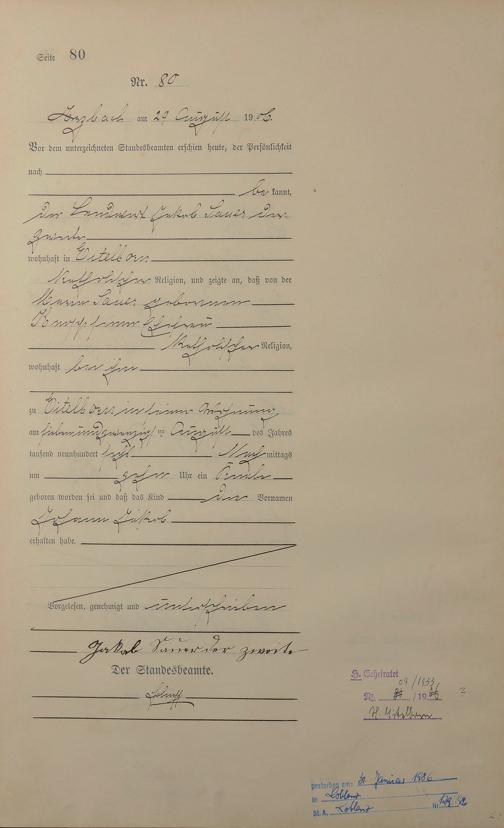 Seite 80
Nr. 80
Arzbach am 29 August 1906.
Vor dem unterzeichneten Standesbeamten erschien heute, der Persönlichkeit
nach
be kannt,
der Landwirt Jakob Sauer der
zweite
wohnhaft in Eitelborn
Katholischer Religion, und zeigte an, daß von der
Maria Sauer geborenen
seiner Ehefrau
Katholischer Religion,
wohnhaft bei ihm
zu Eitelborn in seiner Wohnung
am siebenundzwanzigsten August des Jahres
tausend neunhundert sechs Nach mittags
um zehn Uhr ein Knabe
geboren worden sei und daß das Kind den Vornamen
Johann Jakob
erhalten habe.
Vorgelesen, genehmigt und unterschrieben
Jakob Sauer der zweite
Der Standesbeamte.
H. Geheiratet
Nr. 09/1933
gestorben am: Januar 1986
in Koblenz
St.A. Koblenz Nr.